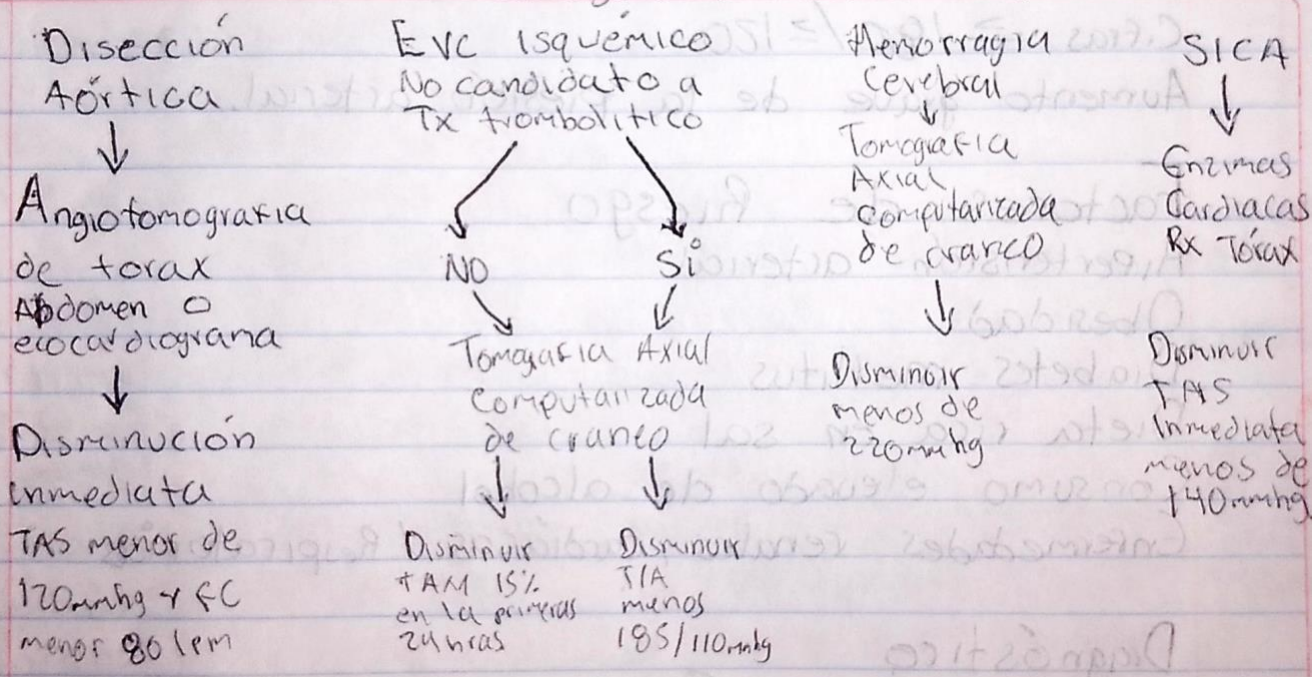 Disección
Aórtica
Angiotomografia
de torax
Abdomen o
ecocardiograma
Disminución
inmediata
TAS menor de
120mmhg y FC
menor 80 lpm
EVC isquémico
No candidato a
Tx trombolitico
NO
Si
Tomografia Axial
computarizada
de craneo
Disminuir
TAM 15%
en la primeras
24hras
Disminuir
T/A
menos
185/110mmhg
Hemorragia
Cerebral
Tomografia
Axial
computarizada
de craneo
Disminuir
menos de
220mmhg
SICA
-Enzimas
Cardiacas
Rx Tórax
Disminuir
TAS
Inmediata
menos de
140mmhg